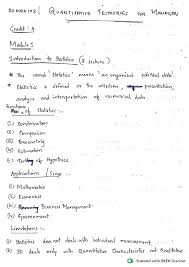 QUANTITATIVE TECHNIQUES FOR MANAGERS
Credit : 4
Module 1
Introduction to Statistics (2 lectures)
* The word 'Statistics' means 'an organised political state'
* Statistics is defined as the collection, presentation,
analysis and interpretation of numerical data
Functions of Statistics :-
(i) Condensation
(ii) Comparison
(iii) Forecasting
(iv) Estimation
(v) Testing of Hypothesis
Applications / Scope :-
(i) Mathematics
(ii) Economics
(iii) Business Management
(iv) Government
Limitations :-
(i) Statistics does not deals with individual measurement
(ii) It deals only with Quantitative Characteristics not Qualitative
Scanned with OKEN Scanner